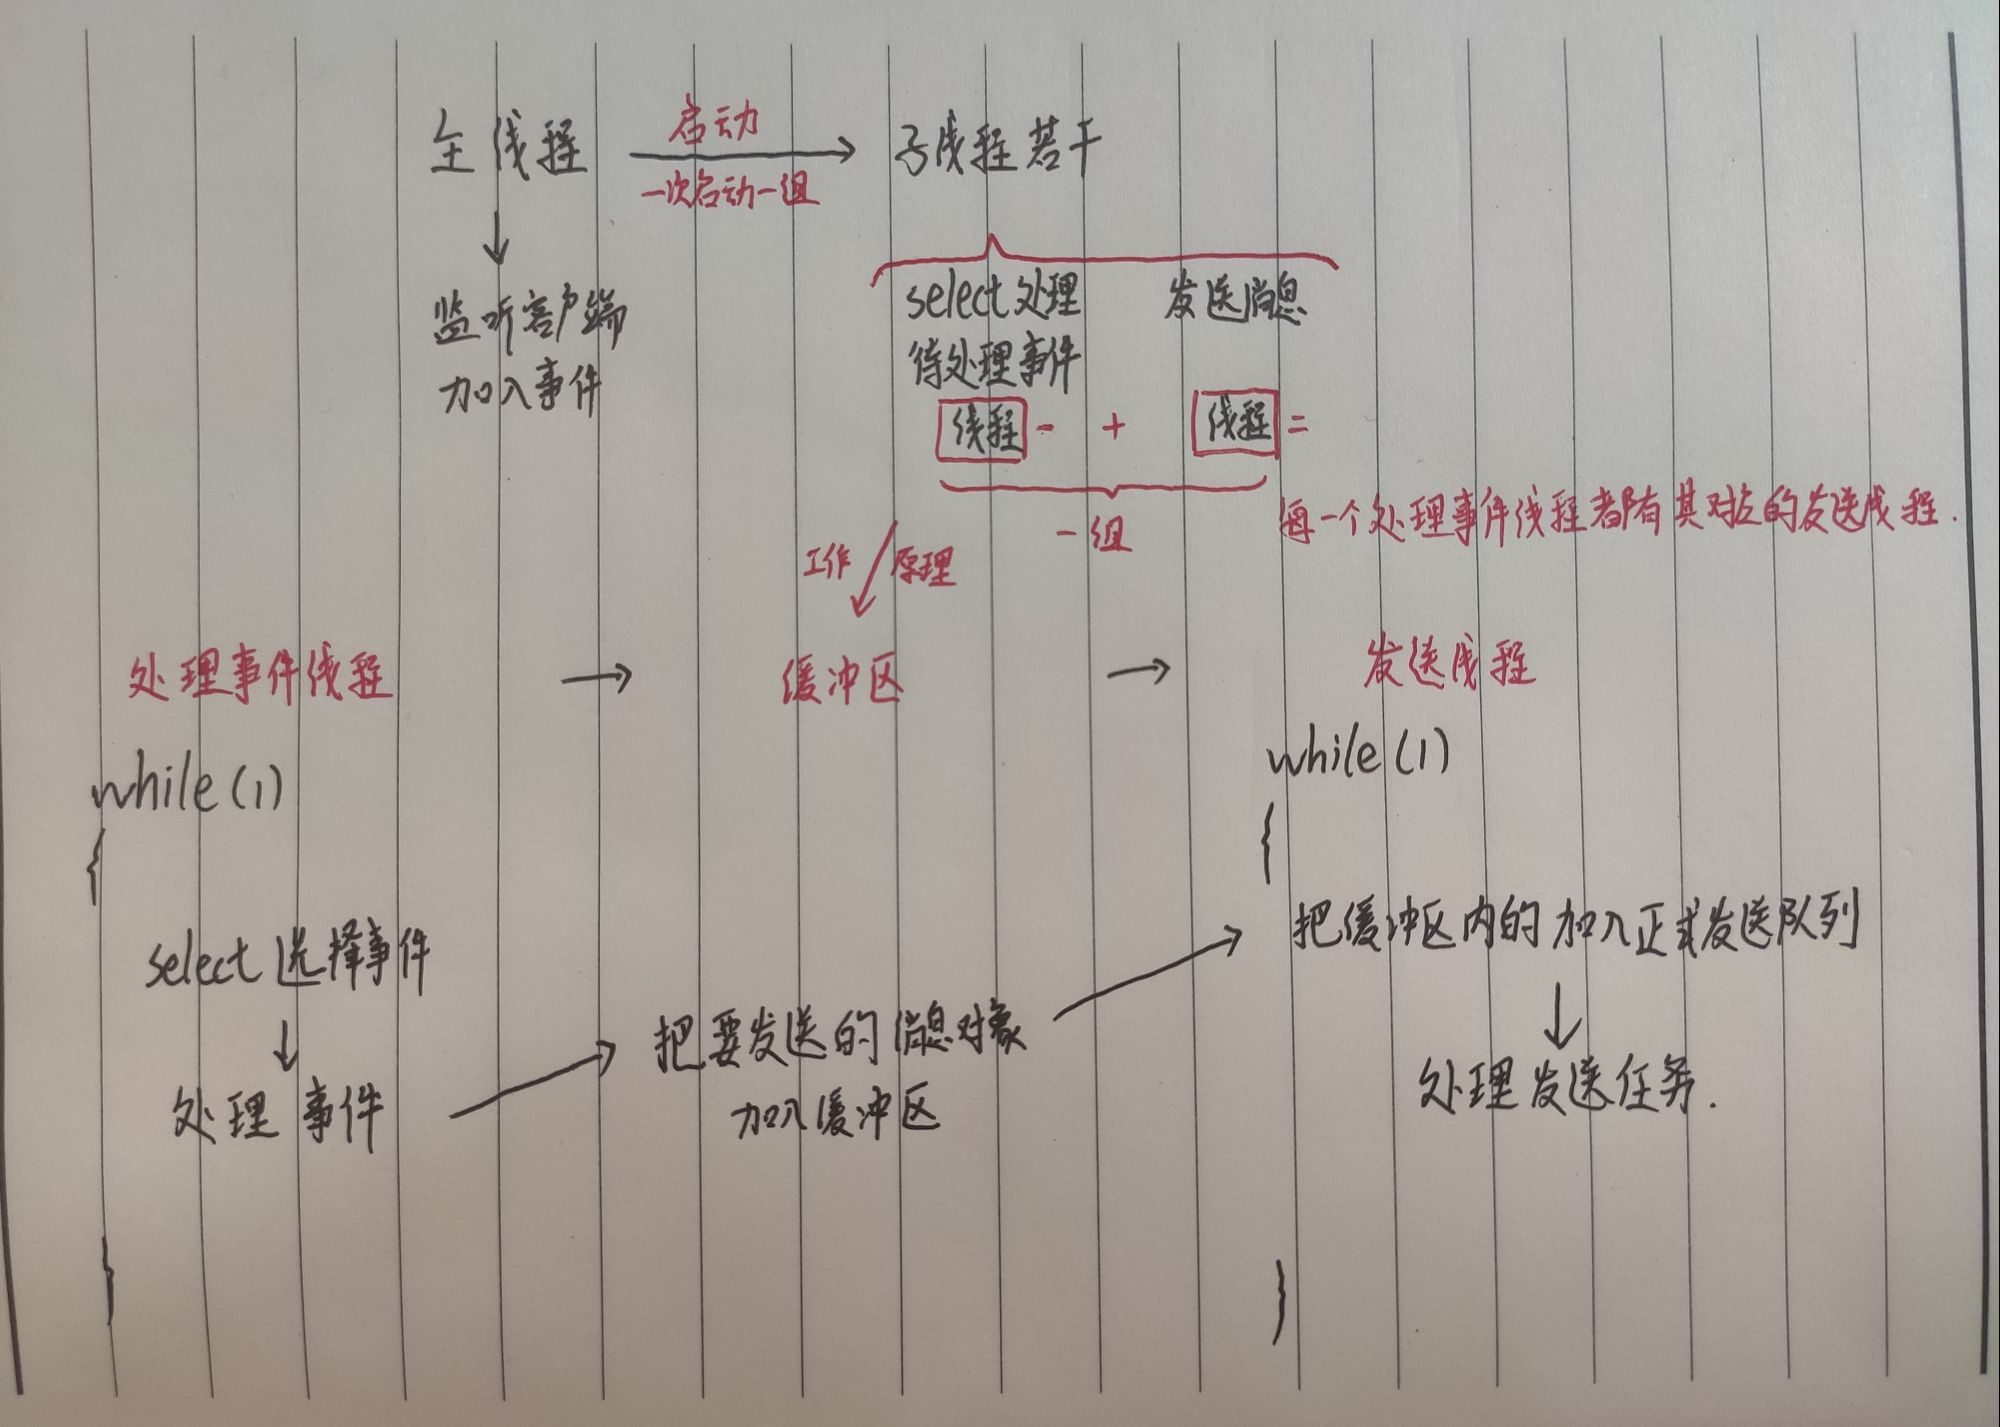 主线程 启动 子线程若干
一次启动一组
监听客户端
加入事件
select处理 发送消息
待处理事件
线程一 + 线程二
一组
每一个处理事件线程都有其对应的发送线程.
工作 原理
处理事件线程 → 缓冲区 → 发送线程
while(1)
{
select选择事件
处理事件
}
把要发送的消息对象
加入缓冲区
while(1)
{
把缓冲区内的加入正式发送队列
处理发送任务.
}